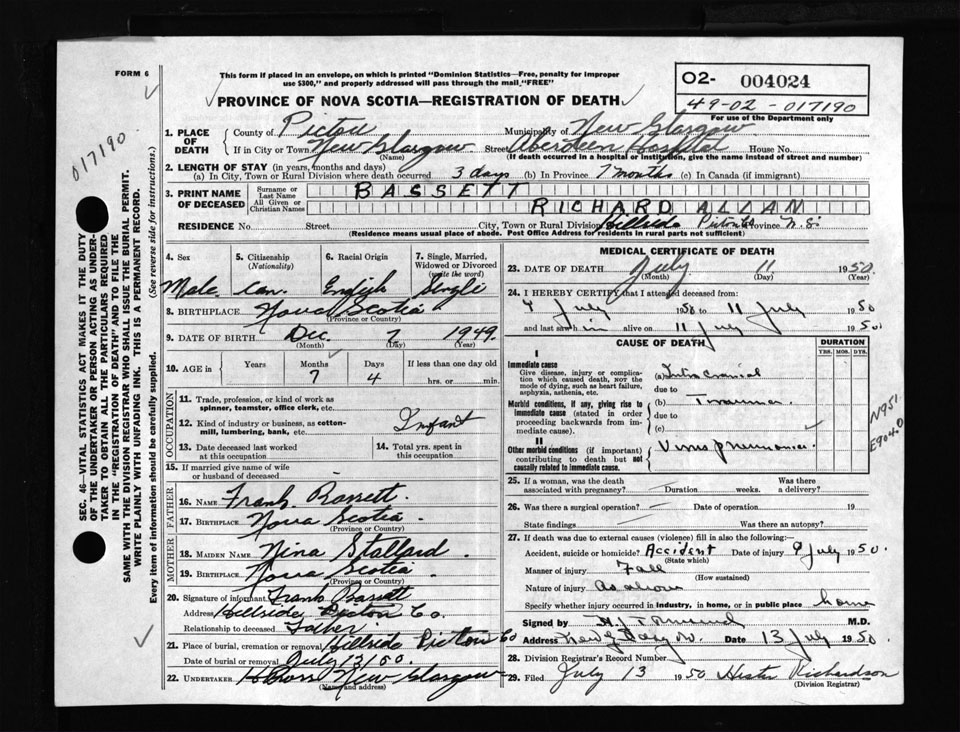 FORM 6
This form if placed in an envelope, on which is printed "Dominion Statistics—Free, penalty for improper
use $300," and properly addressed will pass through the mail "FREE"
O2- 004024
49-02-017190
For use of the Department only
PROVINCE OF NOVA SCOTIA—REGISTRATION OF DEATH
017190
SEC. 46—VITAL STATISTICS ACT MAKES IT THE DUTY
OF THE UNDERTAKER OR PERSON ACTING AS UNDER-
TAKER TO OBTAIN ALL THE PARTICULARS REQUIRED
IN THE "REGISTRATION OF DEATH" AND TO FILE THE
SAME WITH THE DIVISION REGISTRAR WHO SHALL ISSUE THE BURIAL PERMIT.
WRITE PLAINLY WITH UNFADING INK. THIS IS A PERMANENT RECORD.
Every item of information should be carefully supplied. (See reverse side for instructions.)
1. PLACE OF DEATH County of Pictou Municipality of New Glasgow
If in City or Town New Glasgow Street Aberdeen Hospital House No.
(Name) (If death occurred in a hospital or institution, give the name instead of street and number)
2. LENGTH OF STAY (in years, months and days)
(a) In City, Town or Rural Division where death occurred 3 days (b) In Province 7 months (c) In Canada (if immigrant)
3 PRINT NAME OF DECEASED Surname or Last Name BASSETT
All Given or Christian Names RICHARD ALLAN
RESIDENCE No. Street City, Town or Rural Division Hillside Pictou Co Province N.S.
(Residence means usual place of abode. Post Office Address for residents in rural parts not sufficient)
4. Sex 5. Citizenship (Nationality) 6. Racial Origin 7. Single, Married, Widowed or Divorced (write the word)
Male Can. English Single
8. BIRTHPLACE Nova Scotia
(Province or Country)
9. DATE OF BIRTH Dec. 7 1949
(Month) (Day) (Year)
10. AGE in Years Months Days If less than one day old
7 4 hrs. or min.
OCCUPATION
11. Trade, profession, or kind of work as
spinner, teamster, office clerk, etc.
12. Kind of industry or business, as cotton-
mill, lumbering, bank, etc. Infant
13. Date deceased last worked
at this occupation
14. Total yrs. spent in
this occupation
15. If married give name of wife
or husband of deceased -
FATHER
16. NAME Frank Bassett.
17. BIRTHPLACE Nova Scotia.
(Province or Country)
MOTHER
18. MAIDEN NAME Nina Stallard
19. BIRTHPLACE Nova Scotia.
(Province or Country)
20. Signature of informant Frank Bassett
Address Hillside Pictou Co.
Relationship to deceased Father
21. Place of burial, cremation or removal Hillside Pictou Co
Date of burial or removal July 13/50.
22. UNDERTAKER New Glasgow
(Name and address)
MEDICAL CERTIFICATE OF DEATH
23. DATE OF DEATH July 11 1950.
(Month) (Day) (Year)
24. I HEREBY CERTIFY that I attended deceased from:
9 July 1950 to 11 July 1950
and last saw him alive on 11 July 1950.
CAUSE OF DEATH DURATION
YRS. MOS. DYS.
I
Immediate cause
Give disease, injury or complica-
tion which caused death, NOT the
mode of dying, such as heart failure,
asphyxia, asthenia, etc.
(a) Intra Cranial
due to
Morbid conditions, if any, giving rise to
immediate cause (stated in order
proceeding backwards from im-
mediate cause).
(b) Trauma.
due to
(c)
II
Other morbid conditions (if important)
contributing to death but not
causally related to immediate cause.
Virus pneumonia.
N951.
E904.0
25. If a woman, was the death
associated with pregnancy? — Duration weeks. Was there
a delivery?
26. Was there a surgical operation? — Date of operation 19
State findings — Was there an autopsy?
27. If death was due to external causes (violence) fill in also the following:
Accident, suicide or homicide? Accident Date of injury 9 July 1950.
(State which)
Manner of injury Fall
(How sustained)
Nature of injury As above
Specify whether injury occurred in industry, in home, or in public place home
Signed by M.D.
Address New Glasgow. Date 13 July 1950
28. Division Registrar's Record Number
29. Filed July 13 1950 Hester Richardson
(Division Registrar)